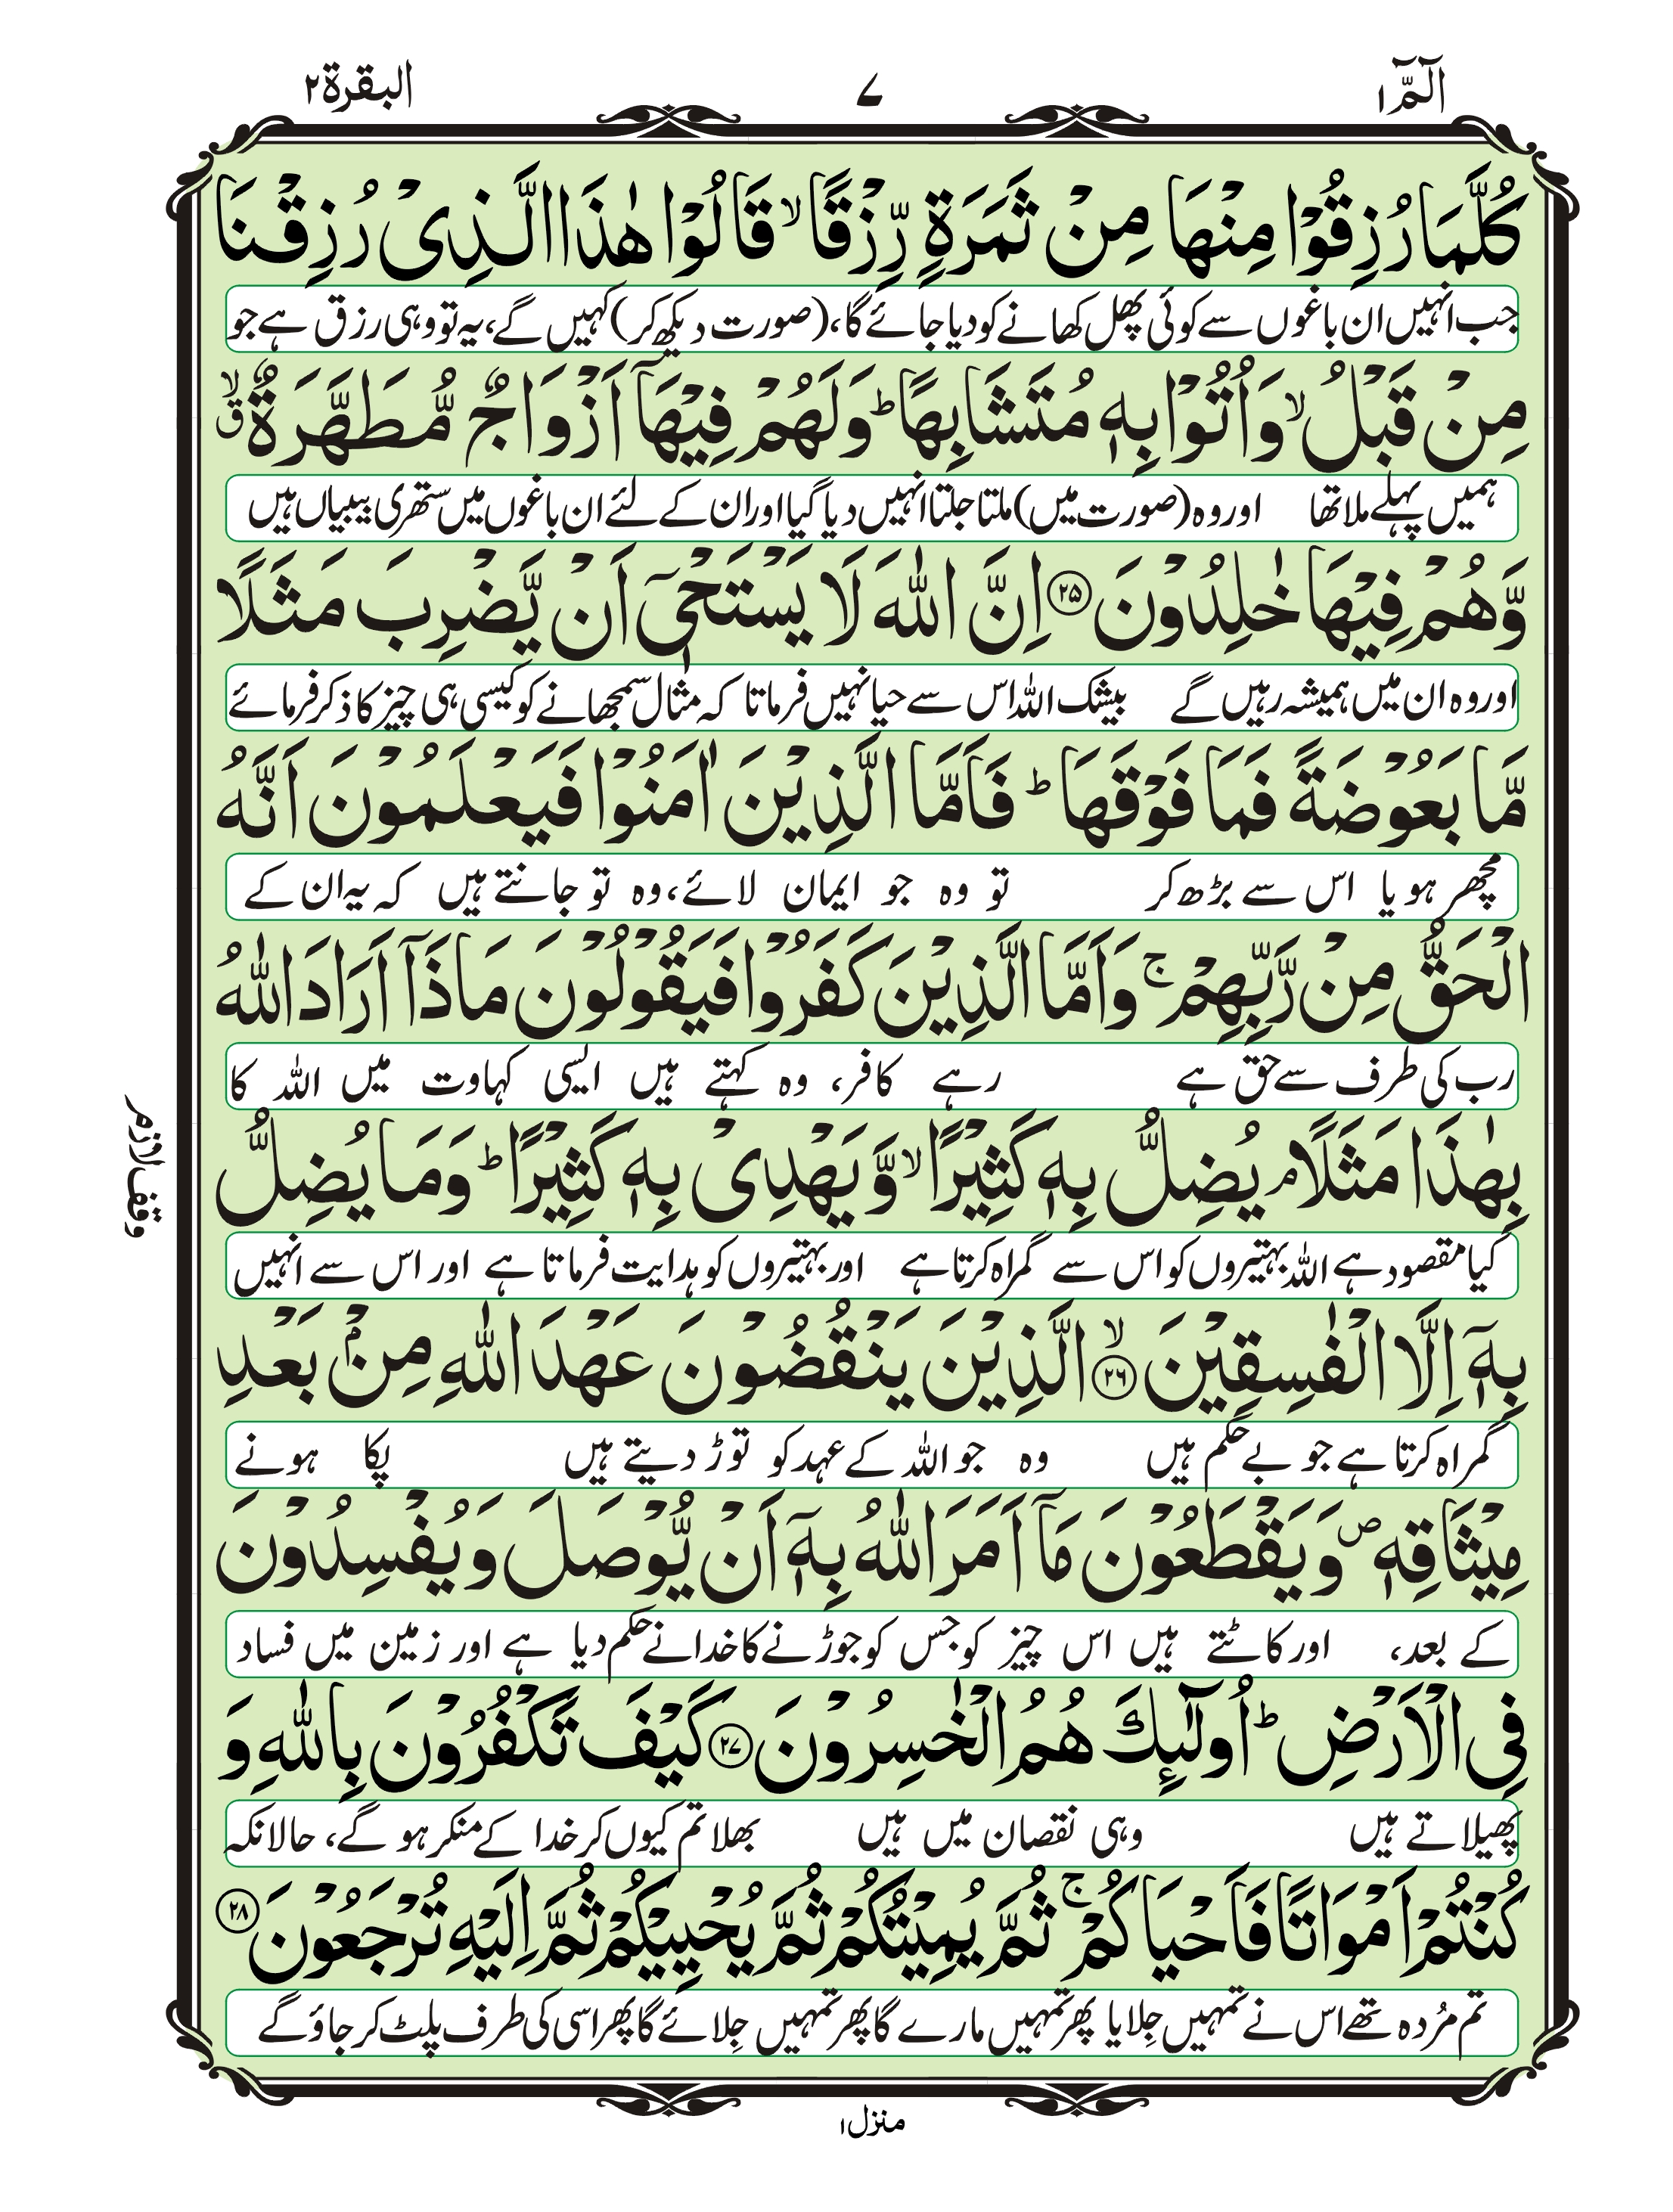 الٓمّٓ ١
٧
البقرة ٢
كُلَّمَا رُزِقُوْا مِنْهَا مِنْ ثَمَرَةٍ رِّزْقًا ۙ قَالُوْا هٰذَا الَّذِیْ رُزِقْنَا
جب انہیں ان باغوں سے کوئی پھل کھانے کو دیا جائے گا، (صورت دیکھ کر) کہیں گے، یہ تو وہی رزق ہے جو
مِنْ قَبْلُ ۙ وَاُتُوْا بِهٖ مُتَشَابِهًا ؕ وَلَهُمْ فِیْهَاۤ اَزْوَاجٌ مُّطَهَّرَةٌ ۙۗ
ہمیں پہلے ملا تھا اور وہ (صورت میں) ملتا جلتا انہیں دیا گیا اور ان کے لئے ان باغوں میں ستھری بیبیاں ہیں
وَّهُمْ فِیْهَا خٰلِدُوْنَ ﴿۲۵﴾ اِنَّ اللّٰهَ لَا یَسْتَحْیٖۤ اَنْ یَّضْرِبَ مَثَلًا
اور وہ ان میں ہمیشہ رہیں گے بیشک اللہ اس سے حیا نہیں فرماتا کہ مثال سمجھانے کو کیسی ہی چیز کا ذکر فرمائے
مَّا بَعُوْضَةً فَمَا فَوْقَهَا ؕ فَاَمَّا الَّذِیْنَ اٰمَنُوْا فَیَعْلَمُوْنَ اَنَّهُ
مچھر ہو یا اس سے بڑھ کر تو وہ جو ایمان لائے، وہ تو جانتے ہیں کہ یہ ان کے
الْحَقُّ مِنْ رَّبِّهِمْ ۚ وَاَمَّا الَّذِیْنَ كَفَرُوْا فَیَقُوْلُوْنَ مَاذَاۤ اَرَادَ اللّٰهُ
رب کی طرف سے حق ہے رہے کافر، وہ کہتے ہیں ایسی کہاوت میں اللہ کا
بِهٰذَا مَثَلًا ۘ یُضِلُّ بِهٖ كَثِیْرًا ۙ وَّیَهْدِیْ بِهٖ كَثِیْرًا ؕ وَمَا یُضِلُّ
کیا مقصود ہے اللہ بہتیروں کو اس سے گمراہ کرتا ہے اور بہتیروں کو ہدایت فرماتا ہے اور اس سے انہیں
وقف لازم
بِهٖۤ اِلَّا الْفٰسِقِیْنَ ﴿ۙ۲۶﴾ الَّذِیْنَ یَنْقُضُوْنَ عَهْدَ اللّٰهِ مِنْۢ بَعْدِ
گمراہ کرتا ہے جو بے حکم ہیں وہ جو اللہ کے عہد کو توڑ دیتے ہیں پکا ہونے
مِیْثَاقِهٖ ۪ وَیَقْطَعُوْنَ مَاۤ اَمَرَ اللّٰهُ بِهٖۤ اَنْ یُّوْصَلَ وَیُفْسِدُوْنَ
کے بعد، اور کاٹتے ہیں اس چیز کو جس کو جوڑنے کا خدا نے حکم دیا ہے اور زمین میں فساد
فِی الْاَرْضِ ؕ اُولٰٓىِٕكَ هُمُ الْخٰسِرُوْنَ ﴿۲۷﴾ كَیْفَ تَكْفُرُوْنَ بِاللّٰهِ وَ
پھیلاتے ہیں وہی نقصان میں ہیں بھلا تم کیوں کر خدا کے منکر ہو گے، حالانکہ
كُنْتُمْ اَمْوَاتًا فَاَحْیَاكُمْ ۚ ثُمَّ یُمِیْتُكُمْ ثُمَّ یُحْیِیْكُمْ ثُمَّ اِلَیْهِ تُرْجَعُوْنَ ﴿۲۸﴾
تم مُردہ تھے اس نے تمہیں جِلایا پھر تمہیں مارے گا پھر تمہیں جِلائے گا پھر اسی کی طرف پلٹ کر جاؤ گے
منزل ١